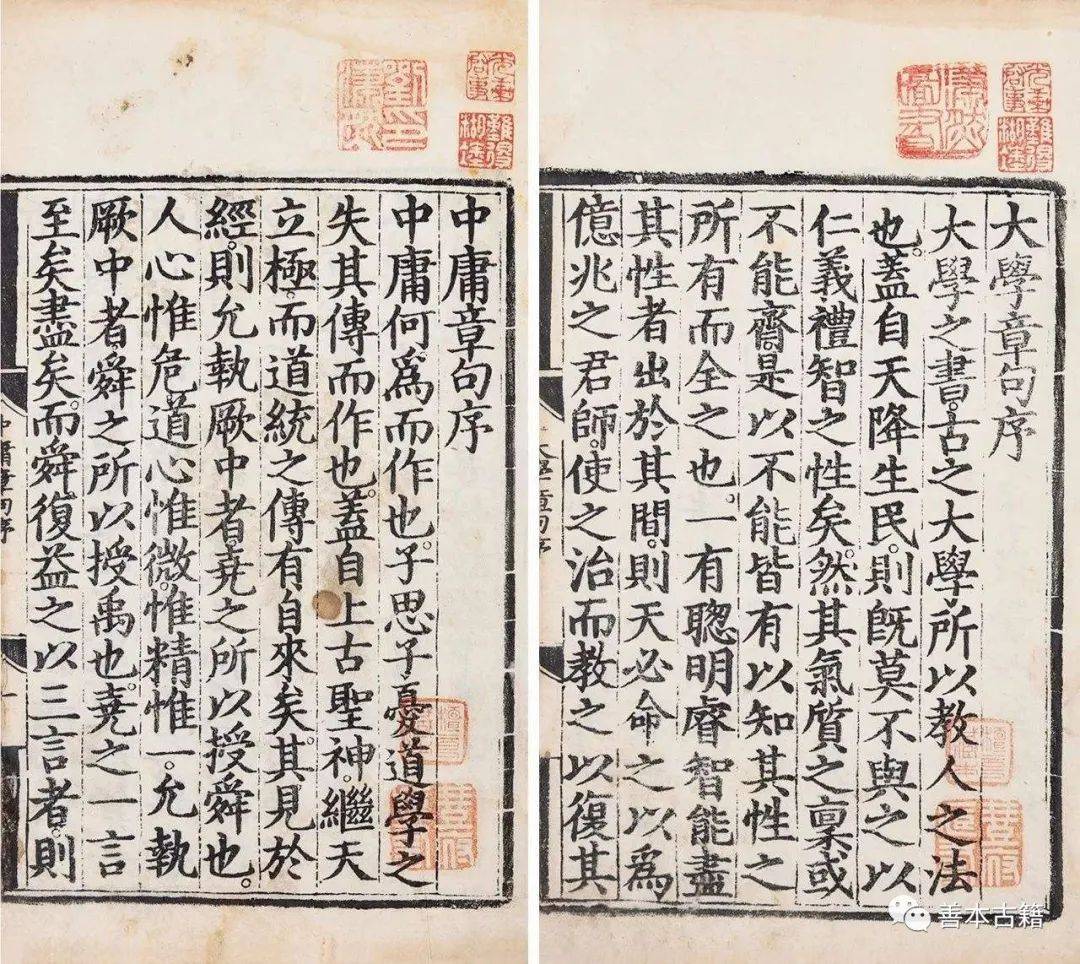 大學章句序
大學之書。古之大學。所以教人之法
也。蓋自天降生民。則旣莫不與之以
仁義禮智之性矣。然其氣質之稟或
不能齊。是以不能皆有以知其性之
所有而全之也。一有聰明睿智能盡
其性者出於其間。則天必命之以爲
億兆之君師。使之治而教之以復其
中庸章句序
中庸何爲而作也。子思子憂道學之
失其傳而作也。蓋自上古聖神。繼天
立極。而道統之傳有自來矣。其見於
經。則允執厥中者。堯之所以授舜也。
人心惟危道心惟微。惟精惟一。允執
厥中者。舜之所以授禹也。堯之一言
至矣盡矣。而舜復益之以三言者。則
中庸章句序
大學章句序
善本古籍